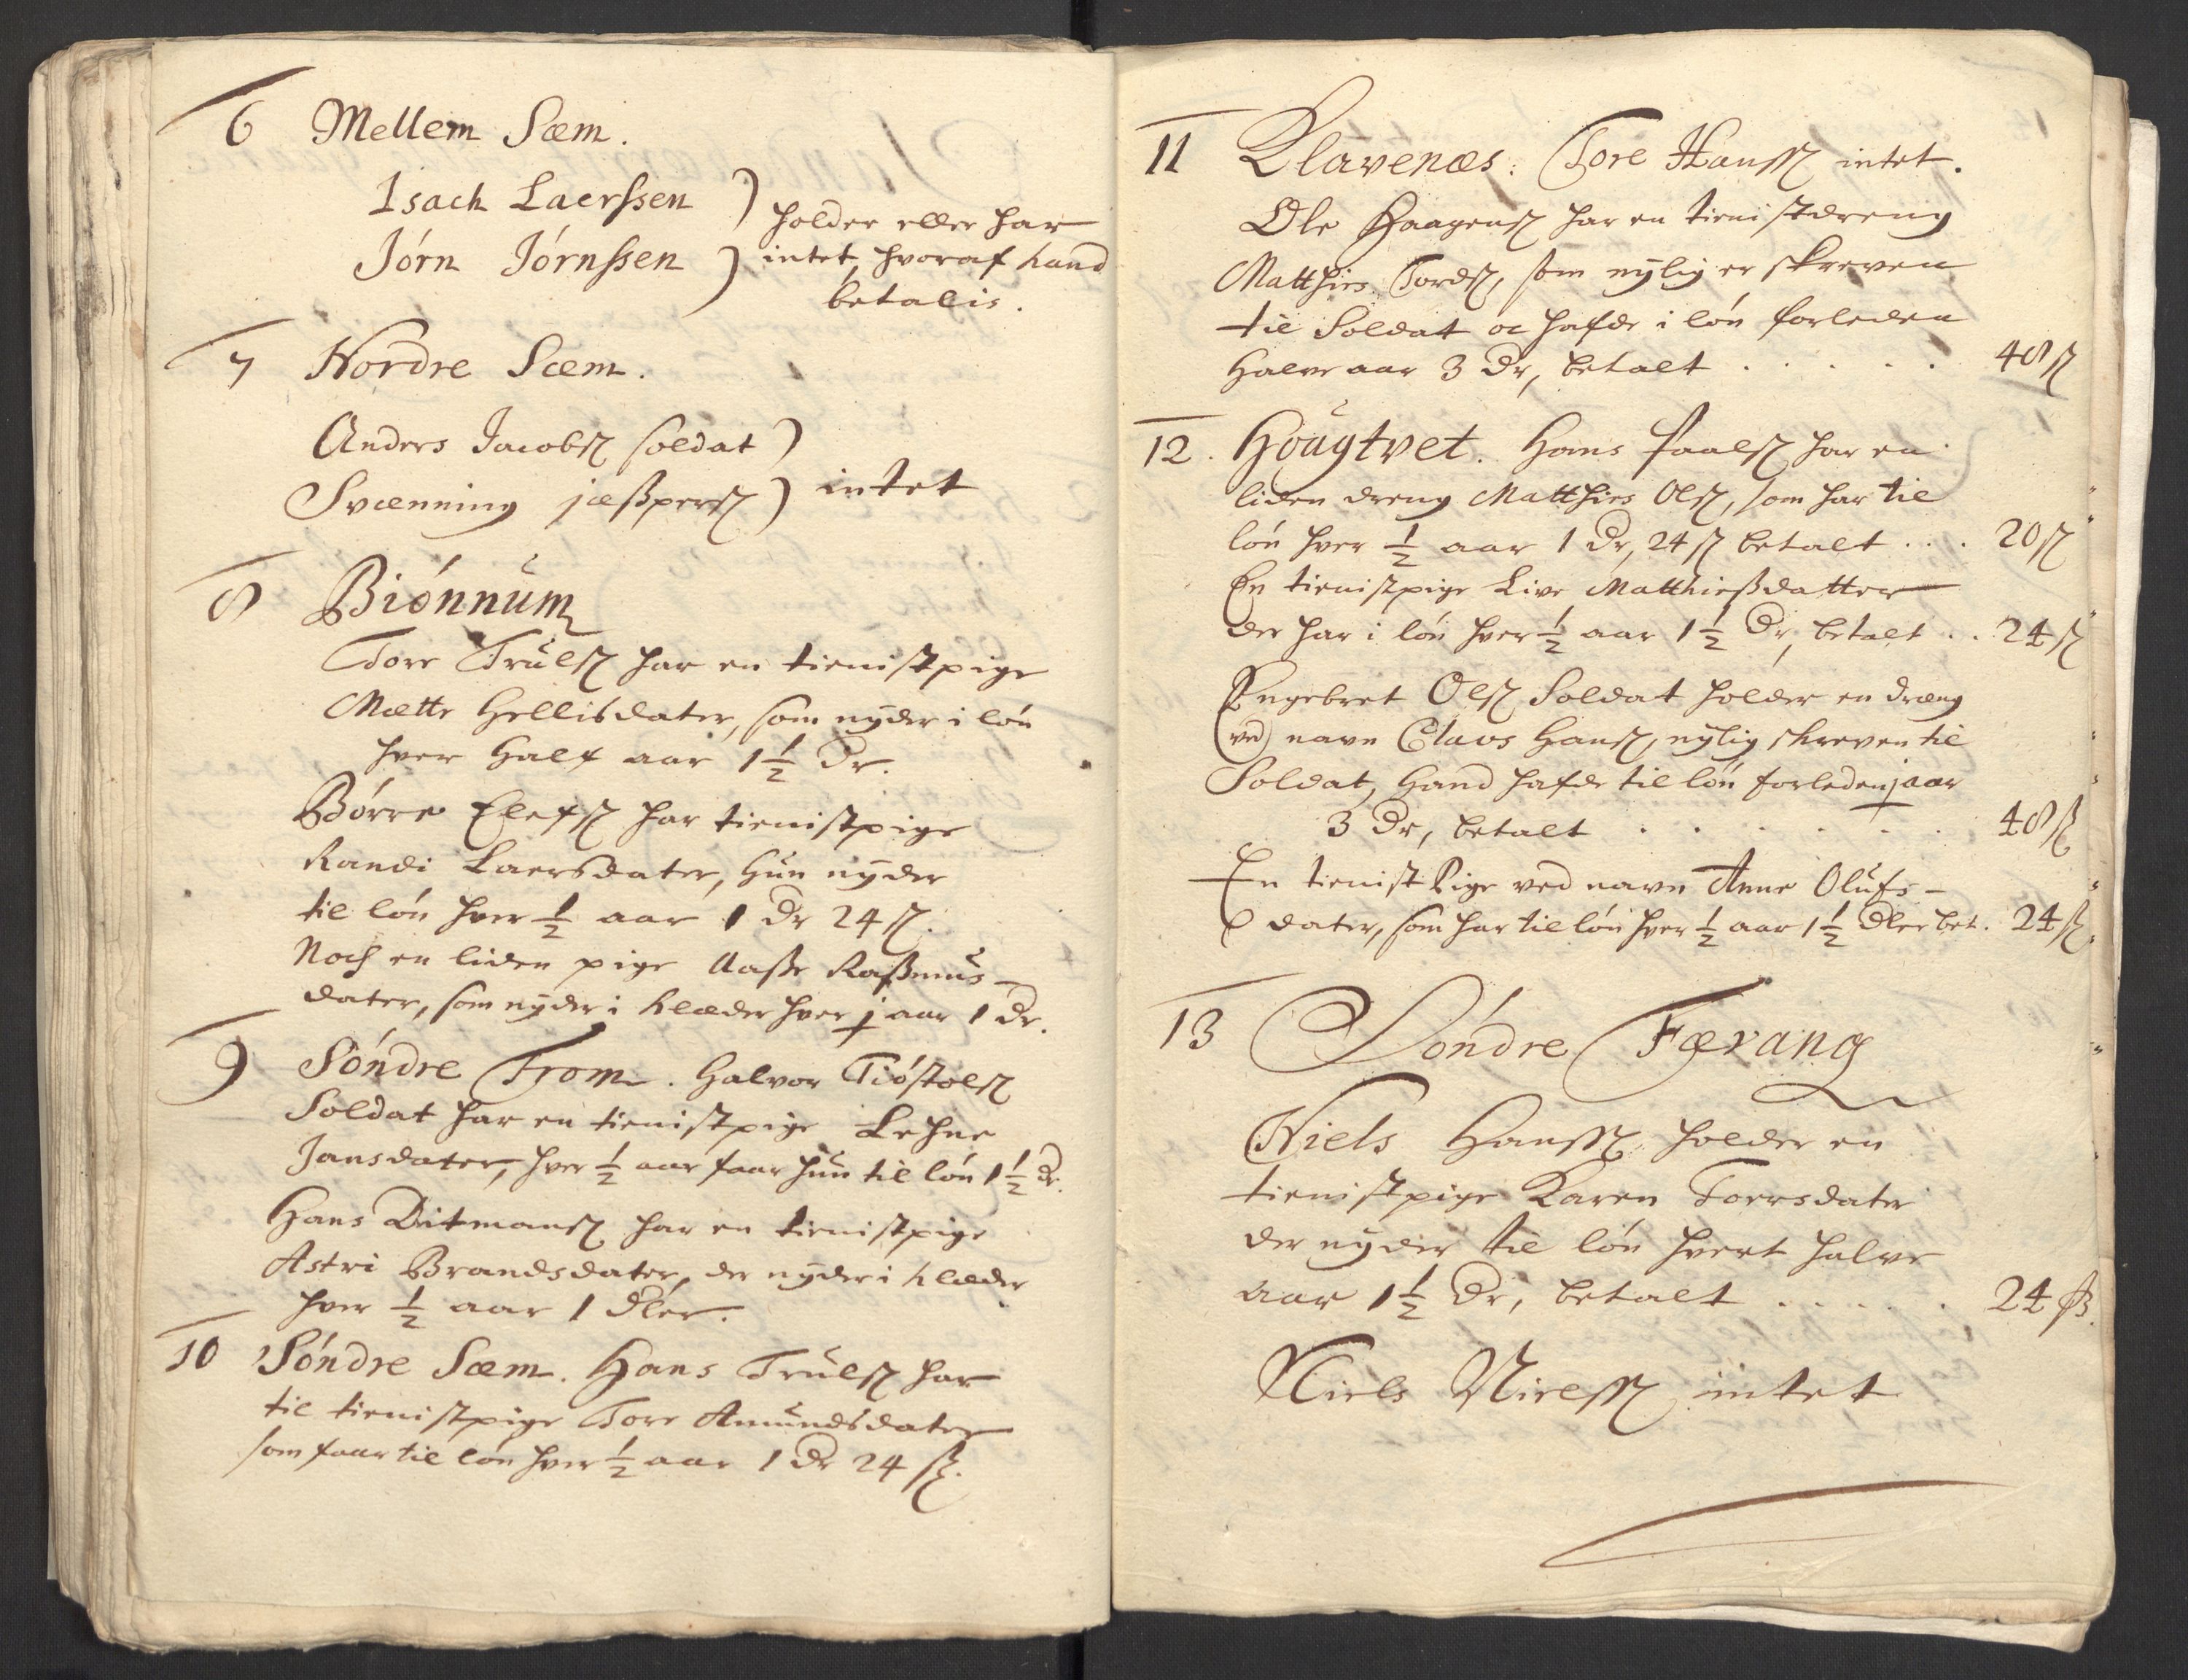 6 Mellem Sæm.
Isach Laerssen ) holder eller har
Jörn Jörnssen ) intet, hvoraf kand
betalis.
7 Nordre Sæm.
Anders Jacobsß soldat )
Svænning jæsspersß ) intet
8 Biönnum
Torr Trulsß har en tienistpige
Mætte Hellisdater, som nyder i lön
hver Half aar 1 1/2 Dr.
Börre Elefsß har tienistpige
Randi Laersdater, Hun nyder
til lön hver 1/2 aar 1 Dr 24 ß.
Noch en liden pige Aasse Rassmus-
dater, som nyder i klæder hver j aar 1 Dr.
9 Söndre From. Halvor Tiöstolsß
Soldat har en tienistpige Lehne
Jansdater, hver 1/2 aar faar hun til lön 1 1/2 Dr.
Hans Ditmansß har en tienistpige
Astri Brandsdater, der nyder i klæder
hver 1/2 aar 1 dler.
10 Söndre Sæm. Hans Trulsß har
til tienistpige Torr Amundsdater
som faar til lön hver 1/2 aar 1 Dr 24 ß.
11 Klavenæs: Tore Hanssß intet.
Ole Haagensß har en tienistdreng
Matthies Tordsß, som nylig er skreven
til Soldat oc hafde i lön forleden
Halve aar 3 Dr, betalt . . . . . 48 ß
12. Hougtvet. Hans Paalsß har en
liden dreng Matthies Olsß, som har til
lön hver 1/2 aar 1 Dr, 24 ß betalt . . . 20 ß
En tienistpige Live Matthiessdatter
der har i lön hver 1/2 aar 1 1/2 Dr, betalt . . 24 ß
Engebret Olsß Soldat holder en dræng
ved navn Claus Hansß, nylig skreven til
Soldat, Hand hafde til lön forleden j aar
3 Dr, betalt . . . . . . 48 ß
En tienist Pige ved navn Anne Olufs-
dater, som har til lön hver 1/2 aar 1 1/2 dler bet. 24 ß
13 Söndre Færang
Niels Hanssß holder en
tienistpige Karen Torrsdater
der nyder til lön hvert halve
aar 1 1/2 Dr, betalt . . . . . . 24 ß.
Niels Nirelssß intet